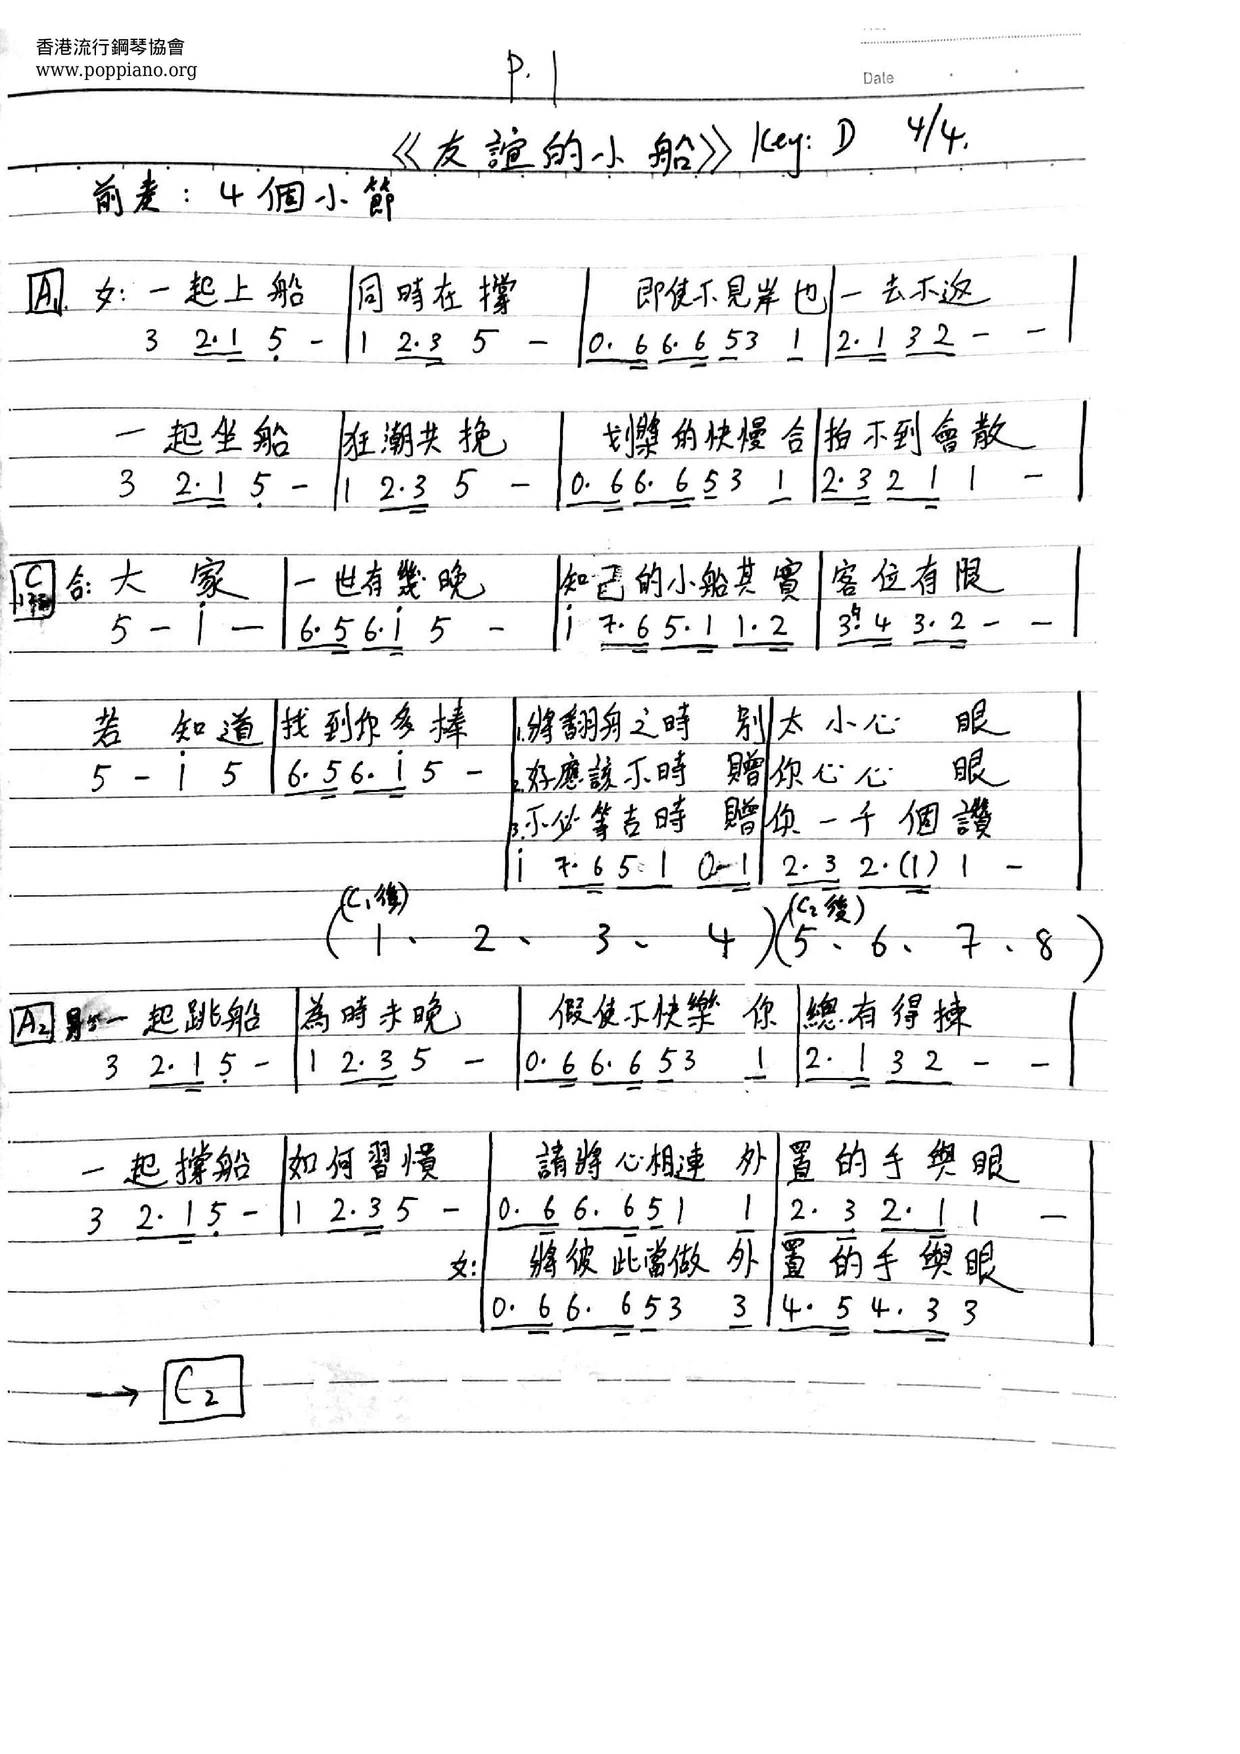 香港流行鋼琴協會
www.poppiano.org
P. 1
Date
《友誼的小船》 Key: D 4/4.
前奏: 4個小節
A1. 女: 一起上船 | 同時在撐 | 即使不見岸也 | 一去不返 |
3 2.1 5 - | 1 2.3 5 - | 0.6 6.6 53 1 | 2.1 32 - - |
一起坐船 | 狂潮共挽 | 划槳的快慢合 | 拍不到會散 |
3 2.1 5 - | 1 2.3 5 - | 0.6 6.6 53 1 | 2.3 21 1 - |
C 合: 大家 | 一世有幾晚 | 知己的小船其實 | 客位有限 |
5 - i - | 6.5 6.i 5 - | i 7.6 5.1 1.2 | 3.4 3.2 - - |
若知道 | 找到你多捧 | 1.將翻舟之時 別 | 太小心眼
5 - i 5 | 6.5 6.i 5 - | 2.好應該不時 贈 | 你心心眼
3.不必等吉時 贈 | 你一千個讚
i 7.6 5.1 0-1 | 2.3 2.(1) 1 - |
(C1後) (C2後)
(1、2、3、4)(5、6、7、8)
A2 男: 一起跳船 | 為時未晚 | 假使不快樂 你 | 總有得揀
3 2.1 5 - | 1 2.3 5 - | 0.6 6.6 53 1 | 2.1 32 - - |
一起撐船 | 如何習慣 | 請將心相連 外 | 置的手與眼
3 2.1 5 - | 1 2.3 5 - | 0.6 6.6 51 1 | 2.3 2.1 1 - |
女: 將彼此當做 外 | 置的手與眼
0.6 6.6 53 3 | 4.5 4.3 3
→ C2 — — — — — — — —